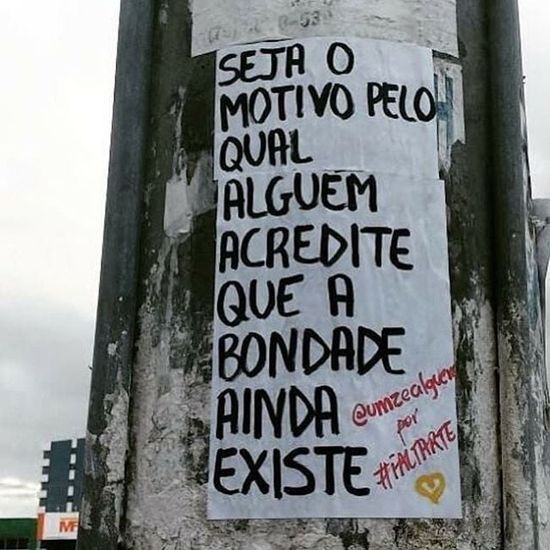 SEJA O
MOTIVO PELO
QUAL
ALGUEM
ACREDITE
QUE A
BONDADE
AINDA
EXISTE
@umzealguem
por